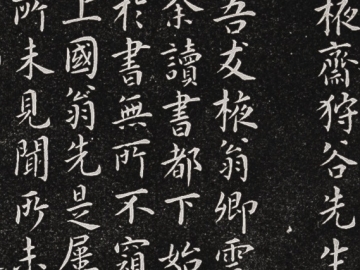 掖齋狩谷先生
吾友掖翁卿雲
余讀書都下始
於書無所不窺
上國翁先是屢
所未見聞所未